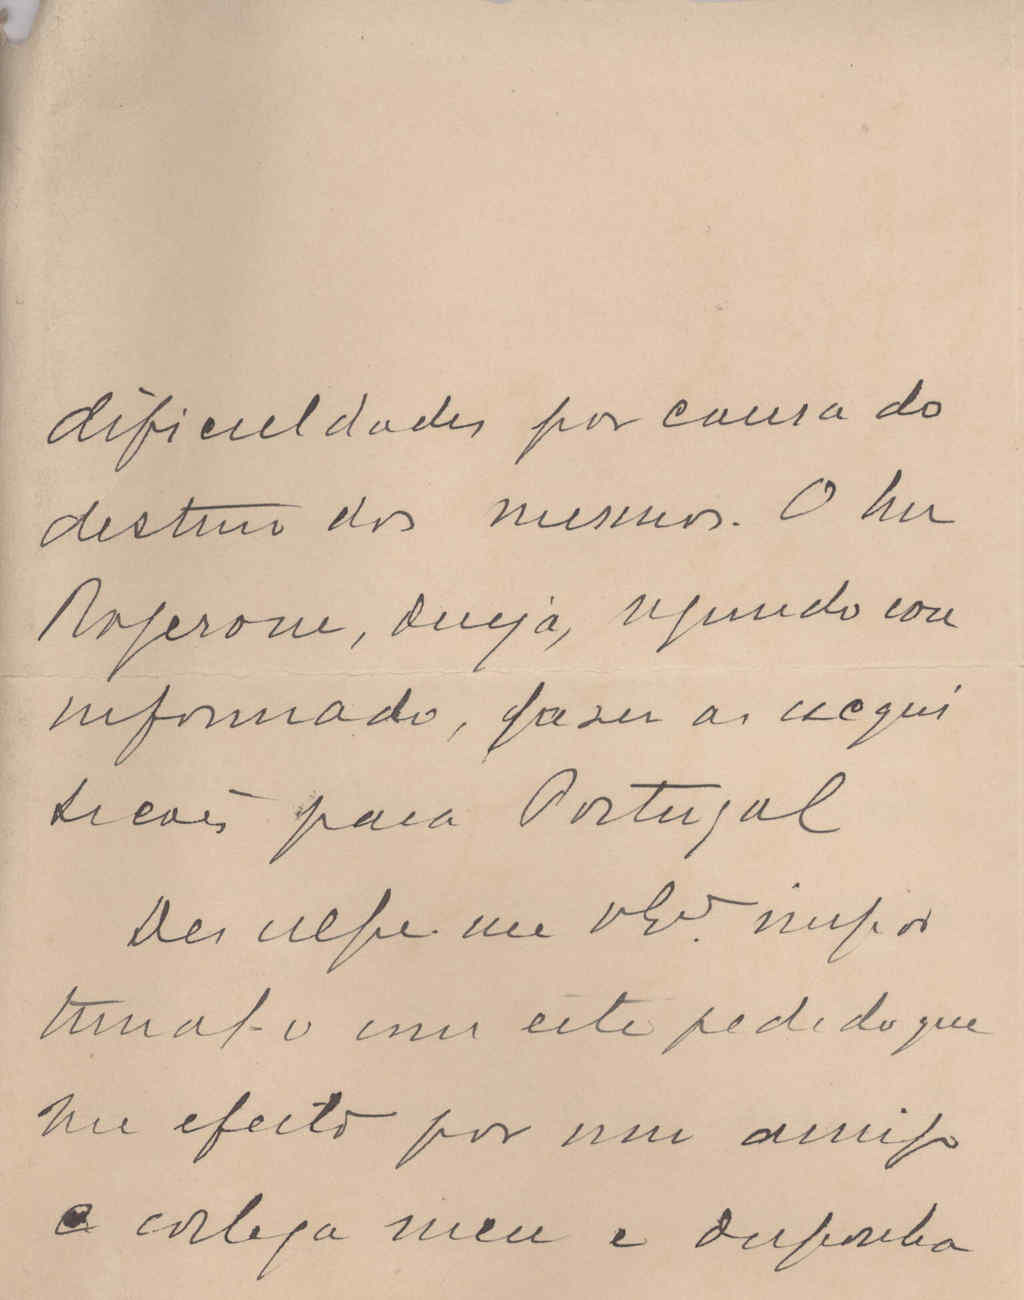 dificuldades por causa do
destino dos mesmos. O Snr
Rogerone, deseja, segundo sou
informado, fazer as acqui
sicões para Portugal
Desculpe-me V. Ex.ª impor
tunal-o com este pedido que
me é feito por um amigo
e collega meu e disponha